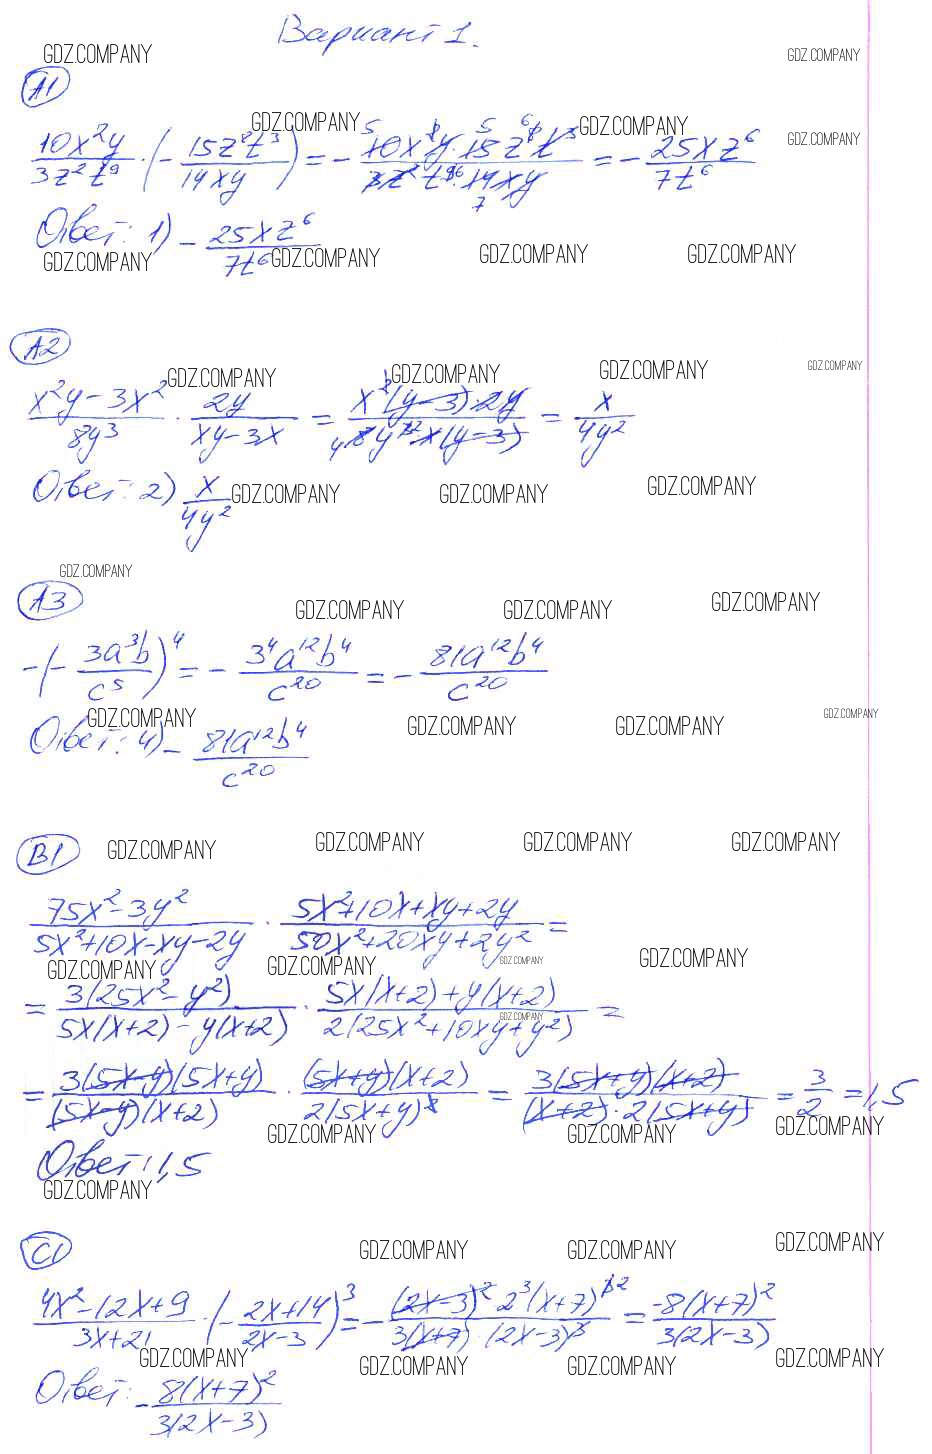 Вариант 1.
GDZ.COMPANY GDZ.COMPANY
А1
GDZ.COMPANY GDZ.COMPANY GDZ.COMPANY
10x²y/3z²t⁹ · (− 15z⁸t³/14xy) = − 10x²y · 15z⁸t³/3z²t⁹ · 14xy = − 25xz⁶/7t⁶
Ответ: 1) − 25xz⁶/7t⁶
GDZ.COMPANY GDZ.COMPANY GDZ.COMPANY GDZ.COMPANY
А2
GDZ.COMPANY GDZ.COMPANY GDZ.COMPANY GDZ.COMPANY
x²y − 3x²/8y³ · 2y/xy − 3x = x²(y − 3) · 2y/8y³ · x(y − 3) = x/4y²
Ответ: 2) x/4y²
GDZ.COMPANY GDZ.COMPANY GDZ.COMPANY
GDZ.COMPANY
А3
GDZ.COMPANY GDZ.COMPANY GDZ.COMPANY
−(− 3a³b/c⁵)⁴ = − 3⁴a¹²b⁴/c²⁰ = − 81a¹²b⁴/c²⁰
GDZ.COMPANY GDZ.COMPANY GDZ.COMPANY GDZ.COMPANY
Ответ: 4) − 81a¹²b⁴/c²⁰
В1
GDZ.COMPANY GDZ.COMPANY GDZ.COMPANY GDZ.COMPANY
75x² − 3y²/5x² + 10x − xy − 2y · 5x² + 10x + xy + 2y/50x² + 20xy + 2y² =
GDZ.COMPANY GDZ.COMPANY GDZ.COMPANY GDZ.COMPANY
= 3(25x² − y²)/5x(x + 2) − y(x + 2) · 5x(x + 2) + y(x + 2)/2(25x² + 10xy + y²) =
GDZ.COMPANY
= 3(5x − y)(5x + y)/(5x − y)(x + 2) · (5x + y)(x + 2)/2(5x + y)² = 3(5x + y)(x + 2)/(x + 2) · 2(5x + y) = 3/2 = 1,5
GDZ.COMPANY GDZ.COMPANY GDZ.COMPANY
Ответ: 1,5
GDZ.COMPANY
С1
GDZ.COMPANY GDZ.COMPANY GDZ.COMPANY
4x² − 12x + 9/3x + 21 · (− 2x + 14/2x − 3)³ = − (2x − 3)² · 2³(x + 7)³/3(x + 7) · (2x − 3)³ = −8(x + 7)²/3(2x − 3)
GDZ.COMPANY GDZ.COMPANY GDZ.COMPANY GDZ.COMPANY
Ответ: − 8(x + 7)²/3(2x − 3)